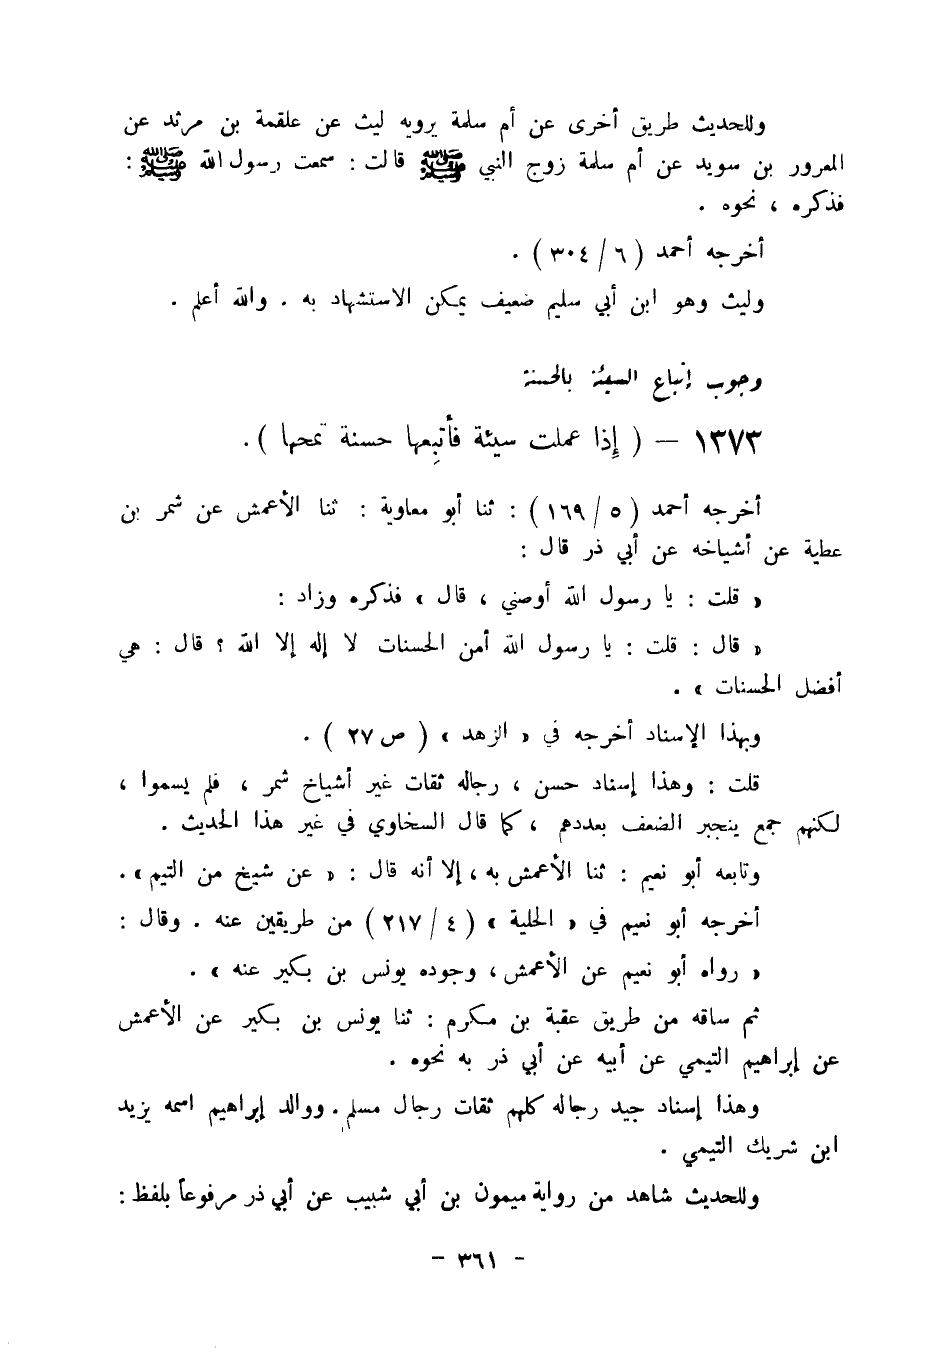 وللحديث طريق أخرى عن أم سلمة يرويه ليث عن علقمة بن مرثد عن
المعرور بن سويد عن أم سلمة زوج النبي ﷺ قالت : سمعت رسول الله ﷺ :
فذكره ، نحوه .
أخرجه أحمد ( ٦ / ٣٠٤ ) .
وليث وهو ابن أبي سليم ضعيف يمكن الاستشهاد به . والله أعلم .
وجوب إتباع السيئة بالحسنة
١٣٧٣ – ( إِذا عملت سيئة فأتبِعها حسنة تمحها ) .
أخرجه أحمد ( ٥ / ١٦٩ ) : ثنا أبو معاوية : ثنا الأعمش عن شمر بن
عطية عن أشياخه عن أبي ذر قال :
« قلت : يا رسول الله أوصني ، قال » فذكره وزاد :
« قال : قلت : يا رسول الله أمن الحسنات لا إله إلا الله ؟ قال : هي
أفضل الحسنات » .
وبهذا الإسناد أخرجه في « الزهد » ( ص ٢٧ ) .
قلت : وهذا إسناد حسن ، رجاله ثقات غير أشياخ شمر ، فلم يسموا ،
لكنهم جمع ينجبر الضعف بعددهم ، كما قال السخاوي في غير هذا الحديث .
وتابعه أبو نعيم : ثنا الأعمش به ، إلا أنه قال : « عن شيخ من التيم » .
أخرجه أبو نعيم في « الحلية » ( ٤ / ٢١٧ ) من طريقين عنه . وقال :
« رواه أبو نعيم عن الأعمش ، وجوده يونس بن بكير عنه » .
ثم ساقه من طريق عقبة بن مكرم : ثنا يونس بن بكير عن الأعمش
عن إبراهيم التيمي عن أبيه عن أبي ذر به نحوه .
وهذا إسناد جيد رجاله كلهم ثقات رجال مسلم . ووالد إبراهيم اسمه يزيد
ابن شريك التيمي .
وللحديث شاهد من رواية ميمون بن أبي شبيب عن أبي ذر مرفوعاً بلفظ :
- ٣٦١ -